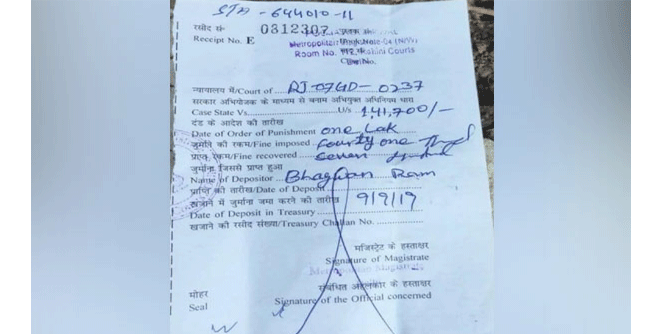 STA - 644010-11
रसीद सं०
Receipt No. E 0312307
Metropolitan Magistrate-04 (N/W)
Room No. 112, Rohini Courts
न्यायालय में/Court of RJ-07GD-0237
सरकार अभियोजक के माध्यम से बनाम अभियुक्त अधिनियम धारा
Case State Vs. U/s 1,41,700/-
दंड के आदेश की तारीख
Date of Order of Punishment one Lak
जुर्माने की रकम/Fine imposed fourty one
प्राप्त रकम/Fine recovered seven
जुर्माना जिससे प्राप्त हुआ
Name of Depositor Bhagwan Ram
प्राप्ति की तारीख/Date of Deposit
खजाने में जुर्माना जमा करने की तारीख 9/9/19
Date of Deposit in Treasury
खजाने की रसीद संख्या/Treasury Challan No.
मजिस्ट्रेट के हस्ताक्षर
Signature of Magistrate
Metropolitan Magistrate
मोहर संबंधित अहलकार के हस्ताक्षर
Seal Signature of the Official concerned